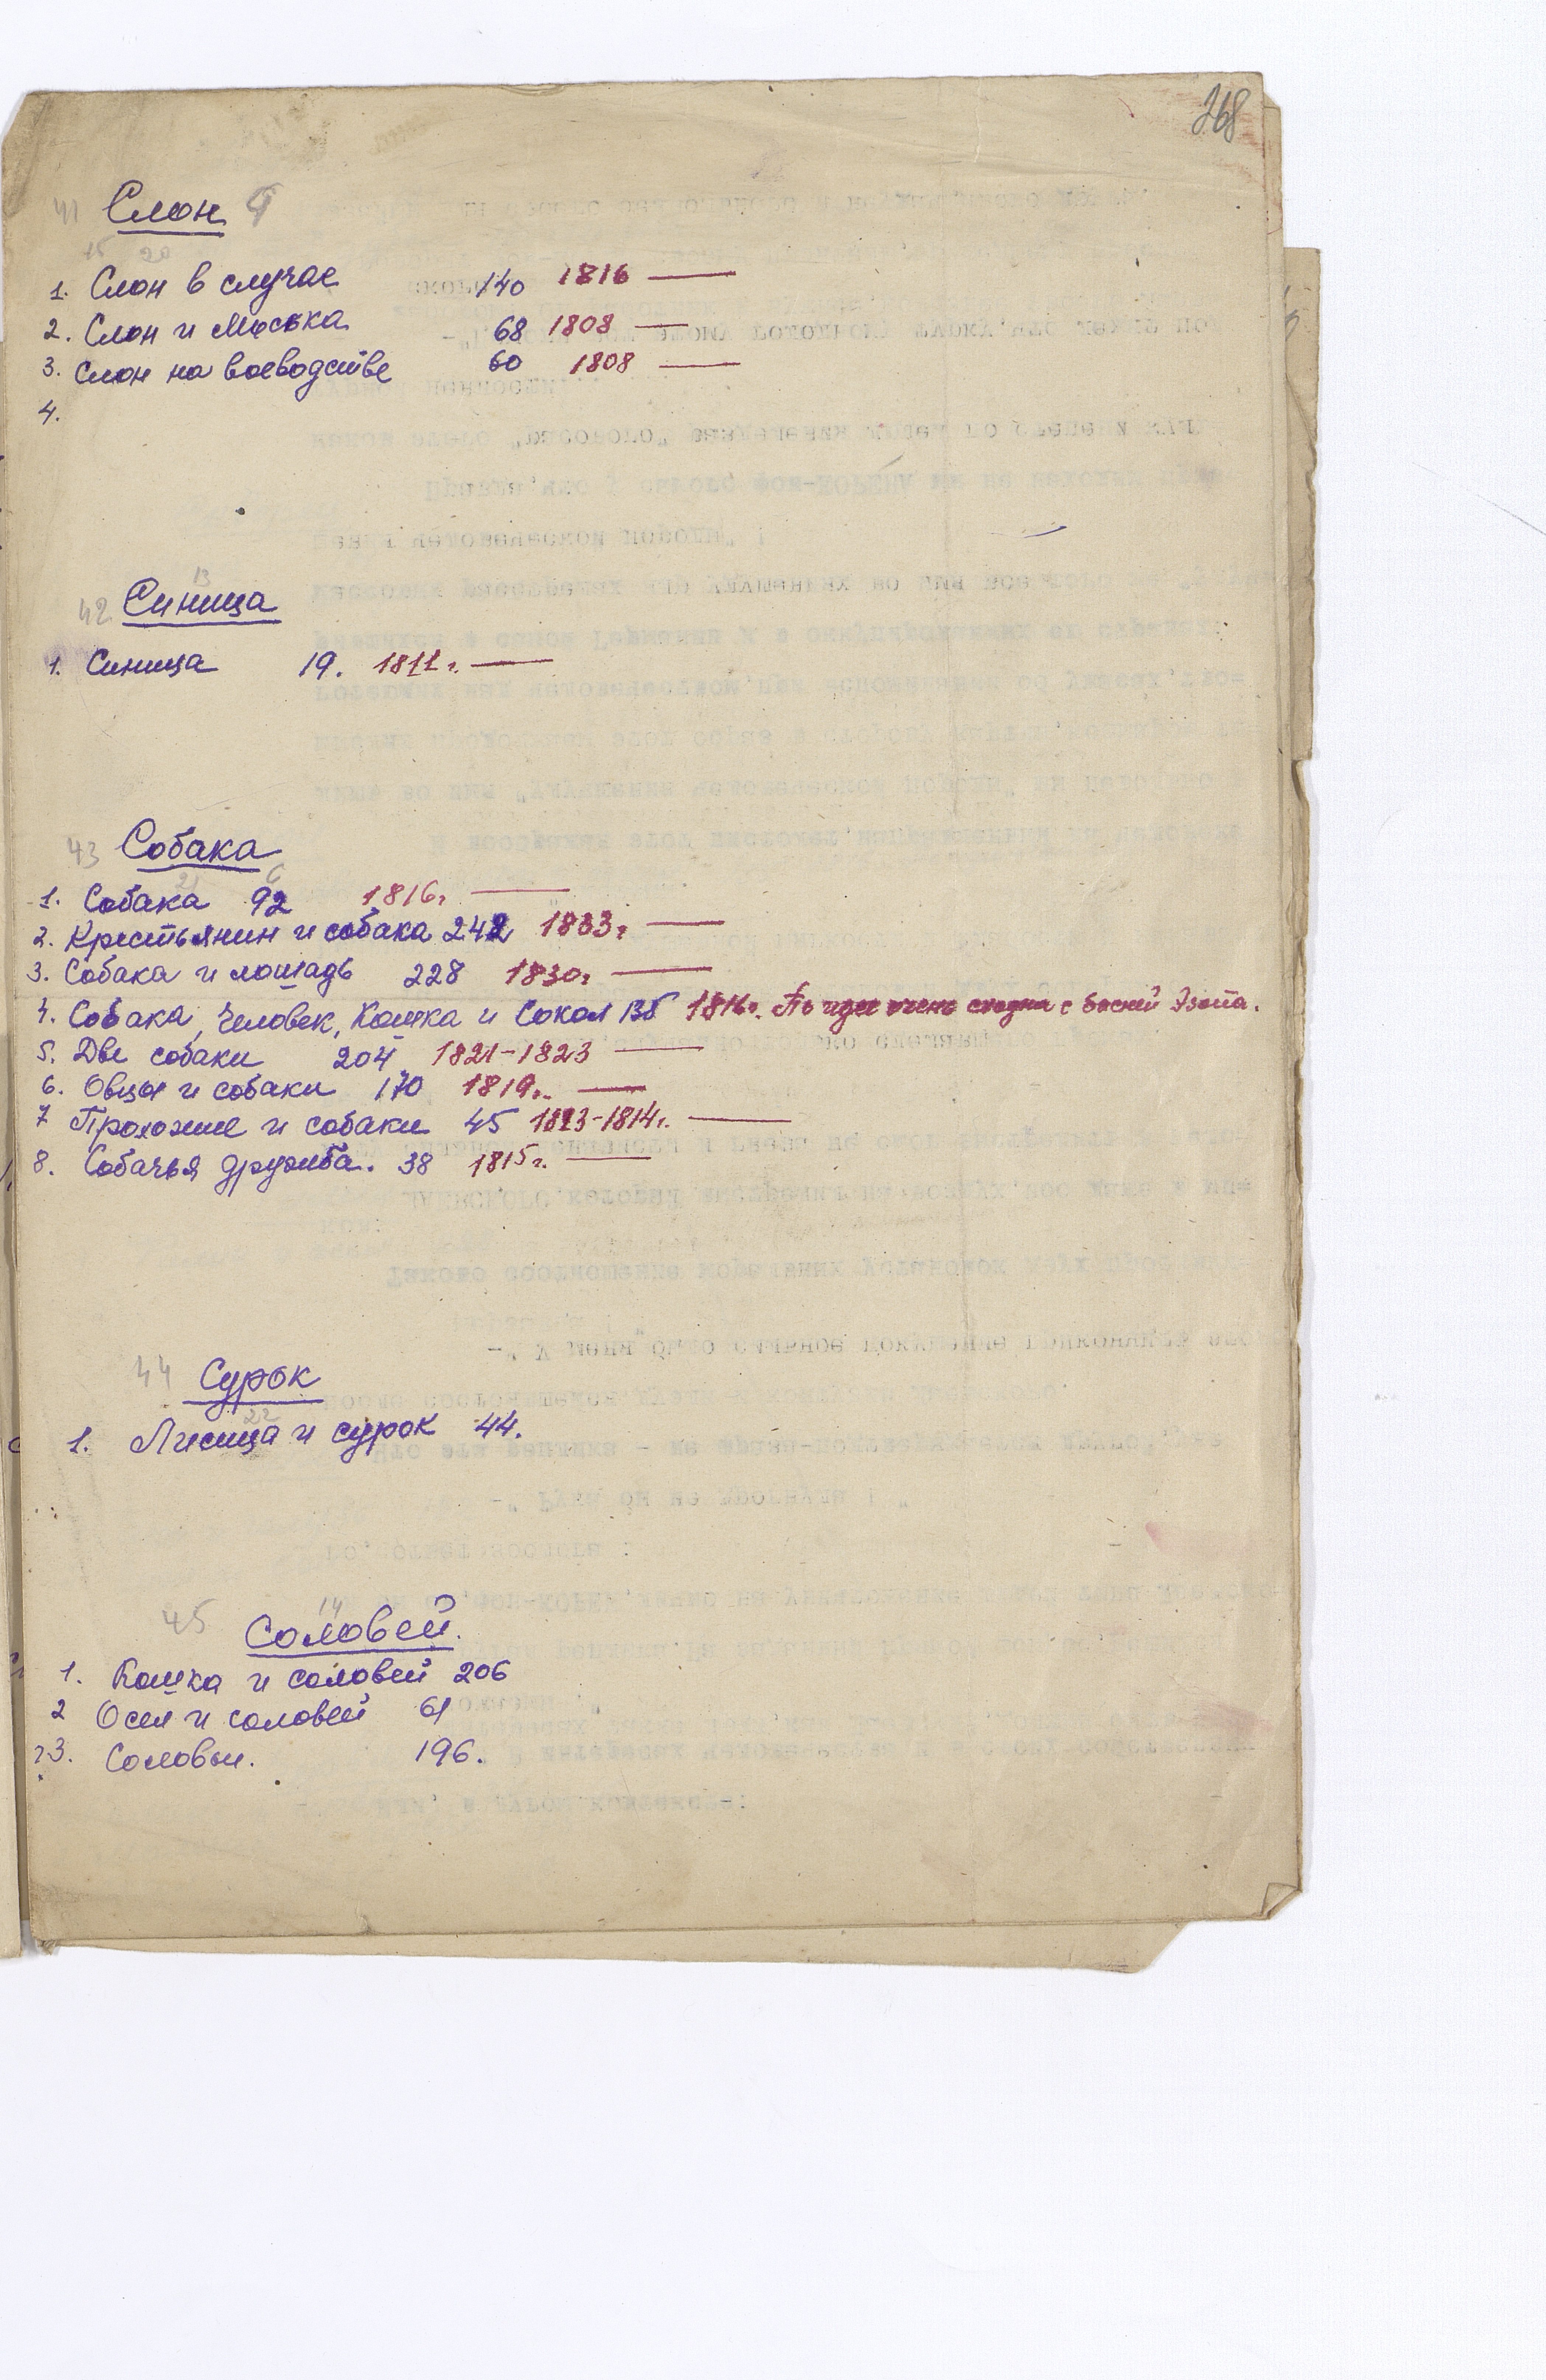 368
41 Слон
15 20
1. Слон в случае 140 1816 —
2. Слон и Моська 68 1808 —
3. Слон на воеводстве 60 1808 —
4.
13
42 Синица
1. Синица 19. 1811 г. —
43 Собака
21 6
1. Собака 92 1816 г. —
2. Крестьянин и собака 242 1833 г. —
3. Собака и лошадь 228 1830 г. —
4. Собака, Человек, Кошка и Сокол 135 1816 г. По идее очень сходна с басней Эзопа.
5. Две собаки 204 1821-1823 —
6. Овцы и собаки 170 1819 г. —
7 Прохожие и собаки 45 1813-1814 г. —
8. Собачья дружба. 38 1815 г. —
44 Сурок
22
1. Лисица и сурок 44.
14
45 Соловей.
1. Кошка и соловей 206
2 Осел и соловей 61
?3. Соловьи. 196.